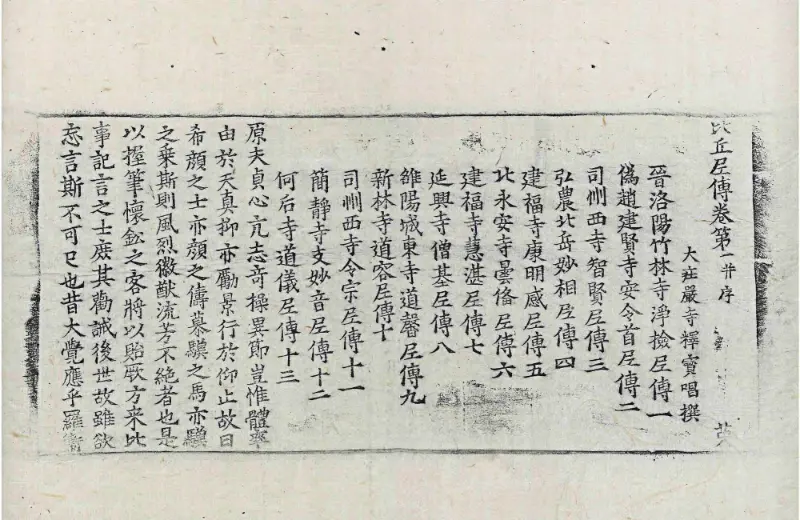 比丘尼傳卷第一并序
大莊嚴寺釋寶唱撰
晉洛陽竹林寺淨撿尼傳一
偽趙建賢寺安令首尼傳二
司州西寺智賢尼傳三
弘農北岳妙相尼傳四
建福寺康明感尼傳五
北永安寺曇俻尼傳六
建福寺慧湛尼傳七
延興寺僧基尼傳八
雒陽城東寺道馨尼傳九
新林寺道容尼傳十
司州西寺令宗尼傳十一
蕳靜寺支妙音尼傳十二
何后寺道儀尼傳十三
原夫貞心亢志奇操異節豈惟體率
由於天真抑亦勵景行於仰止故曰
希顏之士亦顏之儔慕驥之馬亦驥
之乗斯則風烈徽猷流芳不絕者也是
以握筆懷鈆之客將以貽厥方來比
事記言之士庶其勸誡後世故雖欲
忘言斯不可已也昔大覺應乎羅衛